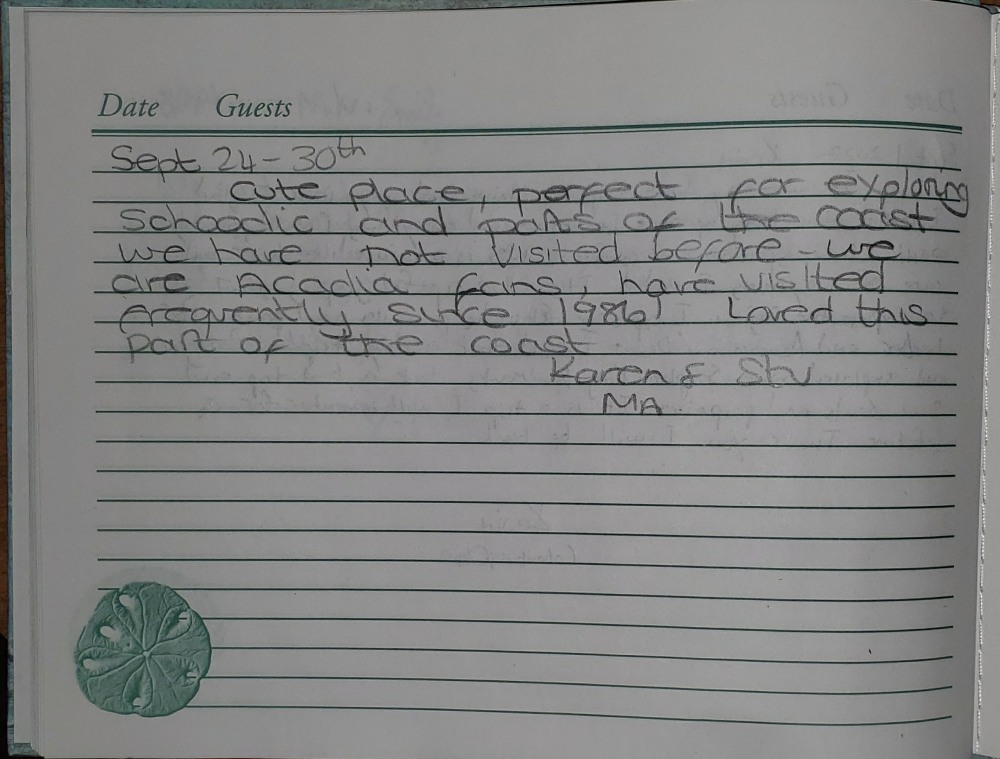 Date Guests
Sept 24-30th
cute place, perfect for exploring
Schoodic and parts of the coast
we have not visited before - we
are Acadia fans, have visited
frequently since 1986! Loved this
part of the coast
Karen & Stu
MA